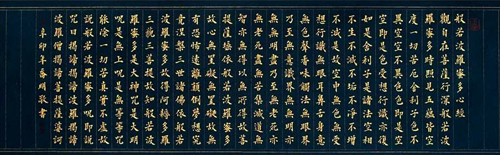 般若波羅蜜多心經
觀自在菩薩行深般若波
羅蜜多時照見五蘊皆空
度一切苦厄舍利子色不
異空空不異色色即是空
空即是色受想行識亦復
如是舍利子是諸法空相
不生不滅不垢不淨不增
不減是故空中無色無受
想行識無眼耳鼻舌身意
無色聲香味觸法無眼界
乃至無意識界無無明亦
無無明盡乃至無老死亦
無老死盡無苦集滅道無
智亦無得以無所得故菩
提薩埵依般若波羅蜜多
故心無罣礙無罣礙故無
有恐怖遠離顛倒夢想究
竟涅槃三世諸佛依般若
波羅蜜多故得阿耨多羅
三藐三菩提故知般若波
羅蜜多是大神咒是大明
咒是無上咒是無等等咒
能除一切苦真實不虛故
說般若波羅蜜多咒即說
咒曰揭諦揭諦波羅揭諦
波羅僧揭諦菩提薩婆訶
辛卯年春明敬書